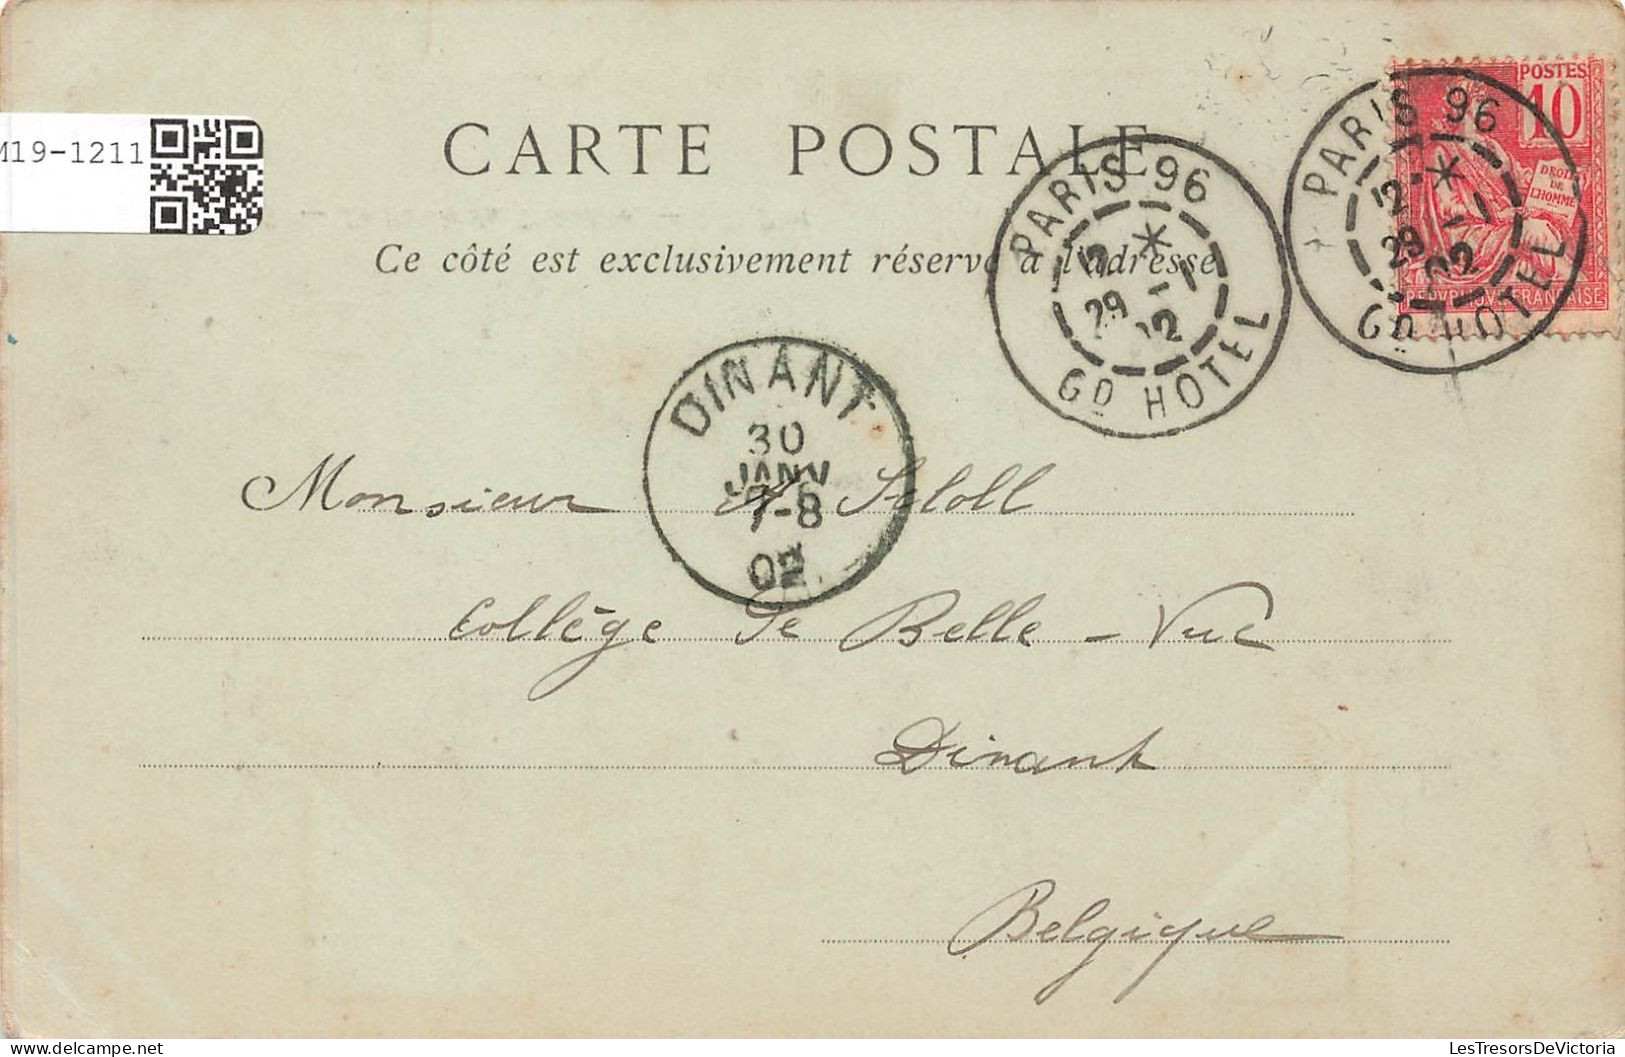 POSTES
10
DROITS
DE
L'HOMME
REPVBLIQVE FRANÇAISE
PARIS 96
12 *
29 -1
02
GD HOTEL
M19-1211
CARTE POSTALE
PARIS 96
12 *
29 -1
02
GD HOTEL
Ce côté est exclusivement réservé à l'adresse
DINANT
30
JANV
7-8
02
Monsieur
Collège de Belle-Vue
Dinant
Belgique
LesTresorsDeVictoria